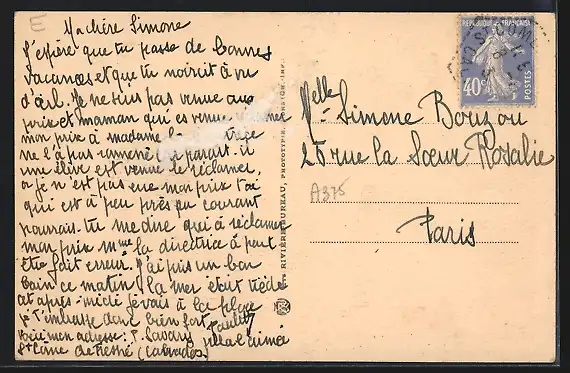 E
Ma chère Simone
J'espère que tu passe de bonnes
vacances et que tu noircit à vu
d'œil. Je ne suis pas venue aux
prix et maman qui es venue
mon prix à madame la
ne l'a pas ramené il parait. il
une élève est venue le réclamer,
je n'est pas eue mon prix toi
qui est à peu près au courant
pourrais. tu me dire qui a réclamer
mon prix Mme la directrice a peut
être fait erreur. J'ai pris un bon
bain ce matin la mer était tiède
et après-midi je vais à la plage
je t'embrasse donc bien fort Paulette
Voici mon adresse: P. Savary villa l'aimé
St Côme de Fresné (Calvados)
RIVIÈRE BUREAU, PHOTOTYPIE,
REPUBLIQUE FRANÇAISE
40c
POSTES
ST COME
Mlle Simone Bouzou
25 rue la Sœur Rosalie
A375
Paris